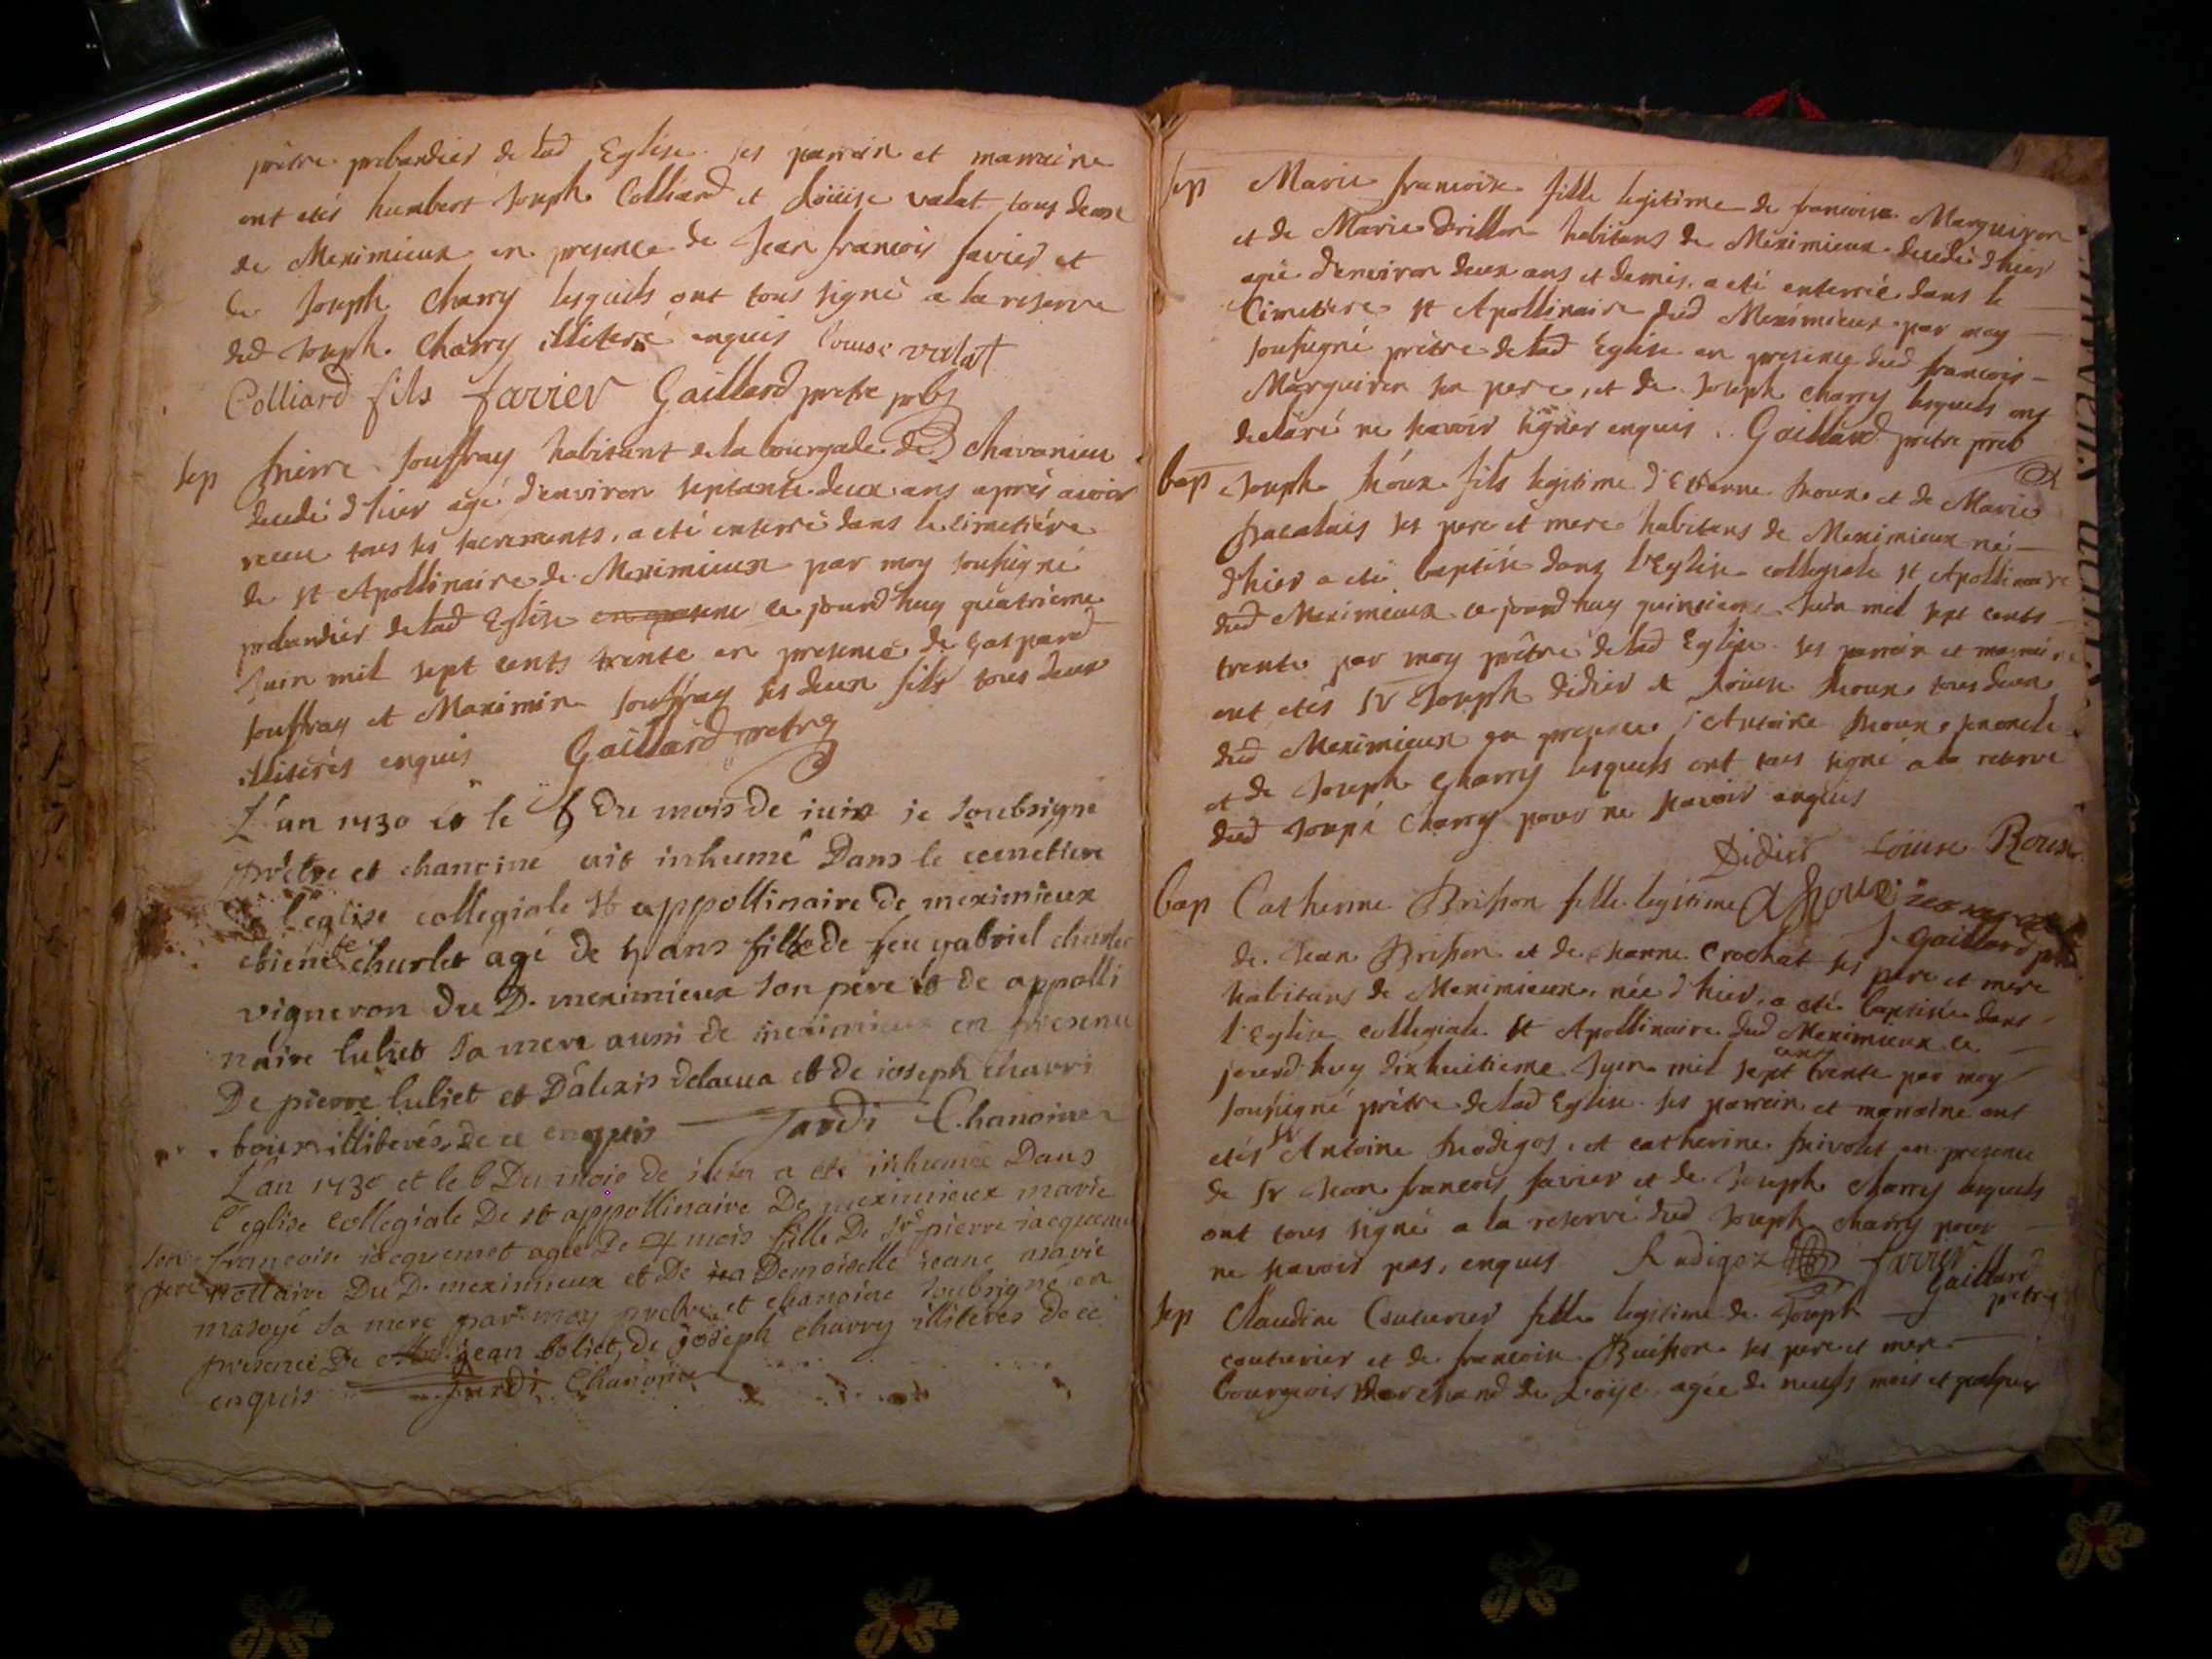 prêtre prebandier de lad Eglise. ses parrein et marraine
ont etés humbert Joseph Colliard et Loüise valat tous deux
de Meximieux en presence de Jean francois favier et
de Joseph Charry lesquels ont tous signé a la reserve
dud Joseph Charry illiteré enquis Louise valat
Colliard fils favier Gaillard pretre prb
sep
pierre Jouffray habitant de la bourgade de Chavanieu
decedé d'hier agé d'environ septante deux ans aprés avoir
receu tous ses sacrements, a eté enterré dans le cimetiére
de st Apollinaire de Meximieux par moy soussigné
prebandier de lad Eglise ce jourd'huy quatrieme
Juin mil sept cents trente en presence de gaspard
Jouffray et Maximin Jouffray ses deux fils tous deux
illiterés enquis Gaillard pretre
L'an 1730 et le 6 du mois de iuin ie soubsigne
prêtre et chanoine ait inhumé Dans le cemetiere
De l'eglise collegiale st appollinaire de meximieux
etiene te churlet agé de 5 ans fille de feu gabriel churlet
vigneron du D. meximieux son pere et de appolli
naire luliet sa mere aussi de meximieux en presence
De pierre luliet et D'alexis delacua et de ioseph charri
tous illiterés de ce enquis Jardi Chanoine
L'an 1730 et le 6 Du mois de iuin a eté inhumée Dans
l'eglise collegiale De st appollinaire De meximieux marie
francoise iacquemet agée De 4 mois fille De Sr pierre iacquemet
son pere nottaire Du D. meximieux et De Demoiselle ieane marie
masoyé sa mere par moy prêtre et chanoine soubsigné en
presence De jean boliet, de joseph charry illiteres de ce
enquis Jardi Chanoine
sep
Marie francoise fille legitime de francois Marguiron
et de Marie Drillon habitans de Meximieux decedé d'hier
agée d'environ deux ans et demis, a eté enterrée dans le
Cimetiere st Apollinaire dud Meximieux par moy
soussigné prêtre de lad Eglise en presence dud francois
Marguiron son pere, et de Joseph Charry lesquels ont
declaré ne scavoir signer enquis. Gaillard pretre preb
bap
Joseph Roux fils legitime d'Etienne Roux et de Marie
ses pere et mere habitans de Meximieux né
d'hier a eté baptisé dans l'Eglise collegiale st Apollinaire
dud Meximieux ce jourd'huy quinzieme Juin mil sept cents
trente par moy prêtre de lad Eglise. ses parrein et marraine
ont etés Sr Joseph didier et Loüise Roux tous deux
dud Meximieux en presence d'Antoine Roux son oncle
et de Joseph Charry lesquels ont tous signé a la reserve
dud Joseph Charry pour ne scavoir enquis
Didier Loüise Roux
Roux Gaillard
bap
Catherine Brisson fille legitime
de Jean Brisson et de Jeanne Crochat ses pere et mere
habitans de Meximieux, née d'hier, a eté baptisée dans
l'Eglise collegiale st Apollinaire dud Meximieux ce
jourd'huy dixhuitieme Juin mil sept cent trente par moy
soussigné prêtre de lad Eglise. ses parrein et marraine ont
etés Sr Antoine Rodigos, et catherine frivolet en presence
de Sr Jean francois favier et de Joseph Charry lesquels
ont tous signé a la reserve dud Joseph Charry pour
ne scavoir pas, enquis Rudigoz favier
Gaillard pretre
sep
Claudine Couturier fille legitime de Joseph
couturier et de francoise Buisson ses pere et mere
bourgeois Marchand de Loÿe agée de neufs mois et quelques